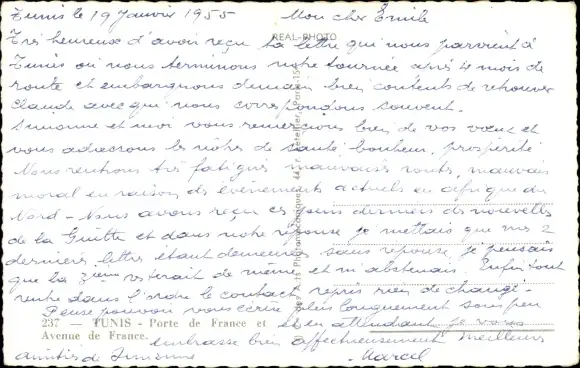 Tunis le 19 Janvier 1955 Mon cher Emile
REAL-PHOTO
Très heureux d'avoir reçu ta lettre qui nous parvient à
Tunis où nous terminons notre tournée après 4 mois de
route et embarquons demain bien contents de retrouver
Claude avec qui nous correspondons souvent.
Simonne et moi vous remercions bien de vos vœux et
vous adressons les nôtres de santé bonheur, prospérité
Nous rentrons très fatigués mauvaises routes, mauvais
moral en raison des évènements actuels en Afrique du
Nord - Nous avons reçu ces jours derniers des nouvelles
de la Guitte et dans notre réponse je mettais que mes 2
dernières lettres étant demeurées sans réponse je pensais
que la 3ème resterait de même et m'abstenais. Enfin tout
rentre dans l'ordre le contact repris rien de changé.
Pense pouvoir vous écrire plus longuement sous peu
237 — TUNIS - Porte de France et
Avenue de France.
et en attendant je vous
embrasse bien affectueusement Meilleures
amitiés de Simonne
Marcel